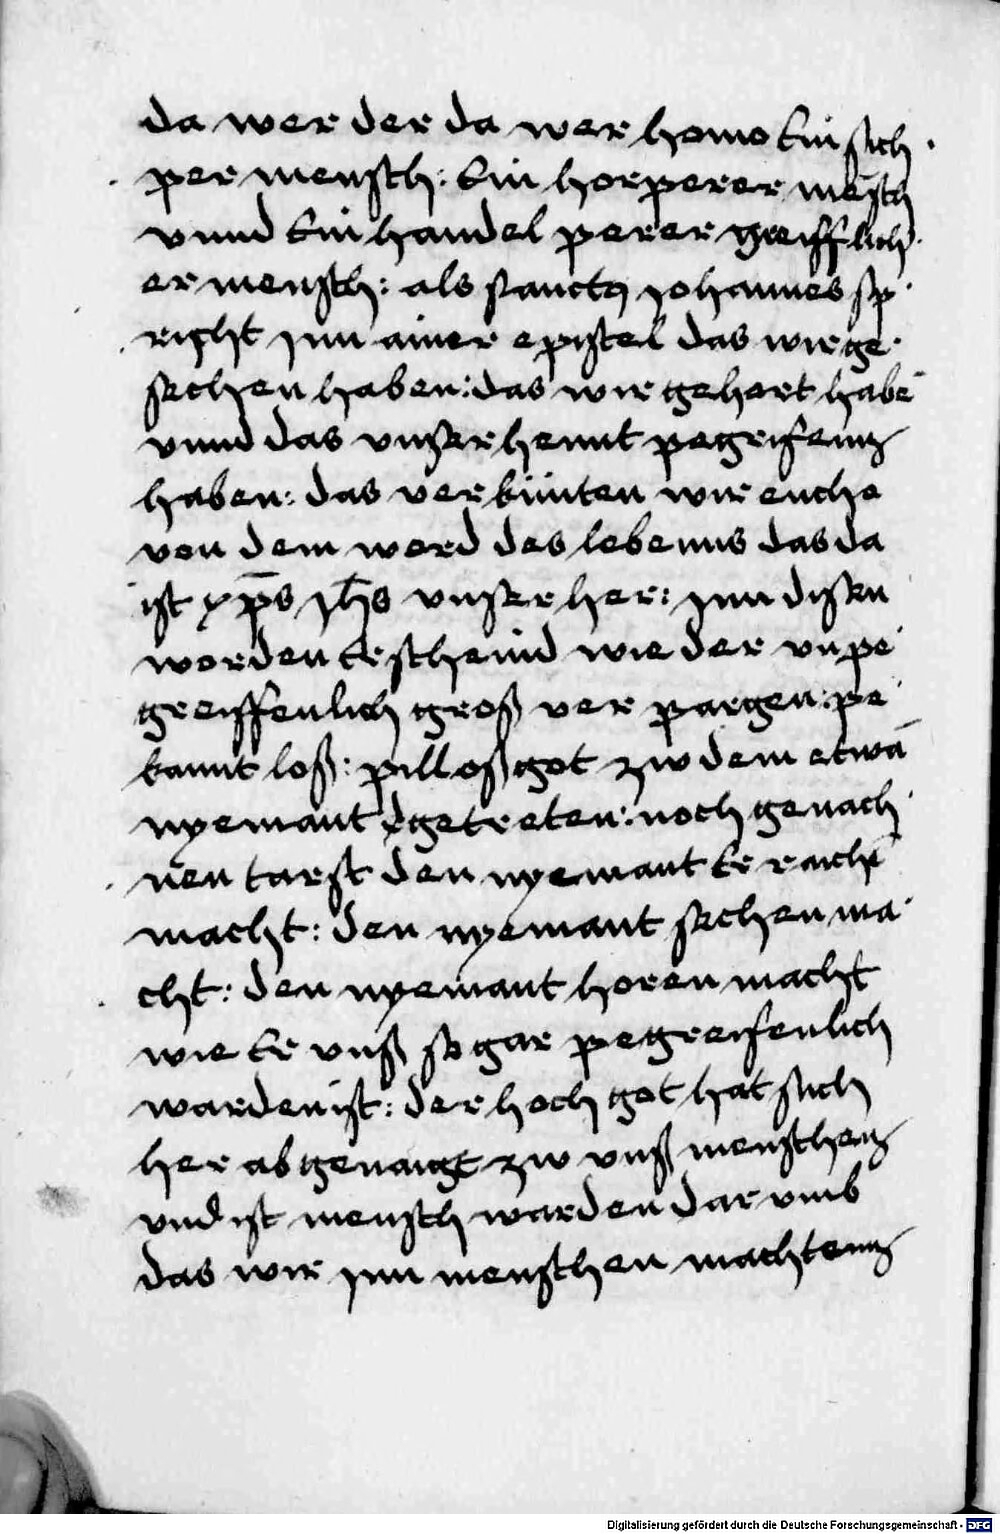 da wer der da wer homo Ein sich
per mensch: Ein horperer mēsch
vnnd Ein handel perer greifflich
er mensch: als sanctus Johannes sp
richt Jnn ainer epistel das wir ge
sechen haben: das wir gehort habē
vnnd das vnnser hennt pegrifenn
haben: das verkünten wir euche
von dem word des lebenns das da
ist xp̄s Jh̄s vnser her: Jnn disen
worden Erscheind wie der vnpe
greiffenlich groß ver pargen: pe
kannt loß: pilloß got zw dem etwā
nyemant getreten: noch genach
nen tarst den nyemant Er raichn̄
macht: den nyemant sechen ma
cht: den nyemant horen macht
wie Er vnß so gar pegreifenlich
warden ist: der hoch got hat sich
her ab genaigt zw vnß menschenn
vnd ist mensch warden dar vmb
das wir Jnn menschen machtenn
Digitalisierung gefördert durch die Deutsche Forschungsgemeinschaft - DFG